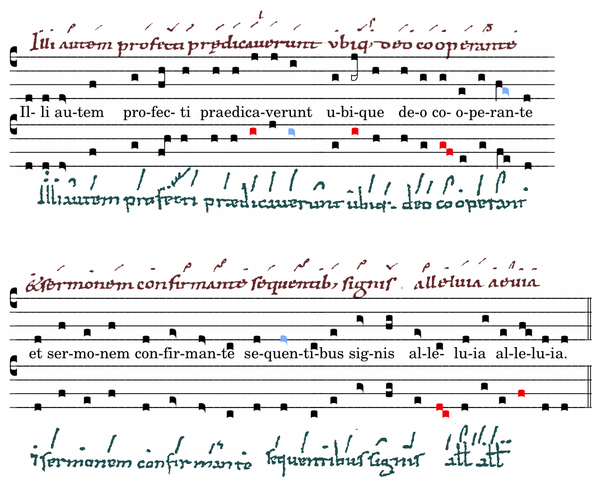 Illi autem profecti prędicauerunt ubiq; deo cooperante
Il- li au-tem pro-fec- ti praedica-verunt u-bi-que de-o co- o-pe-ran-te
Illi autem profecti prædicauerunt ubiq· deo cooperant
& sermonem confirmante sequentib; signis . alleluia aeuia
et ser-mo-nem con-fir-man-te se-quen-ti-bus sig-nis al-le- lu-ia al-le-lu-ia.
⁊ sermonem confirmante sequentibus signis all all